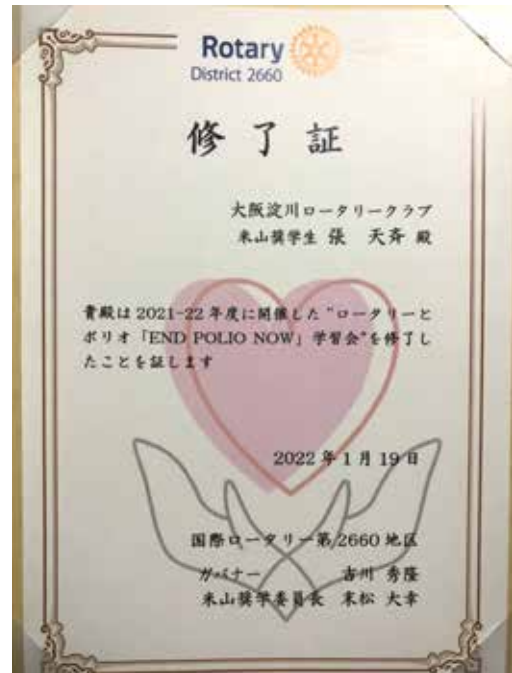 Rotary
District 2660
修了証
大阪淀川ロータリークラブ
米山奨学生 張 天斉 殿
貴殿は2021-22年度に開催した"ロータリーと
ポリオ「END POLIO NOW」学習会"を修了し
たことを証します
2022年1月19日
国際ロータリー第2660地区
ガバナー 吉川 秀隆
米山奨学委員長 末松 大幸